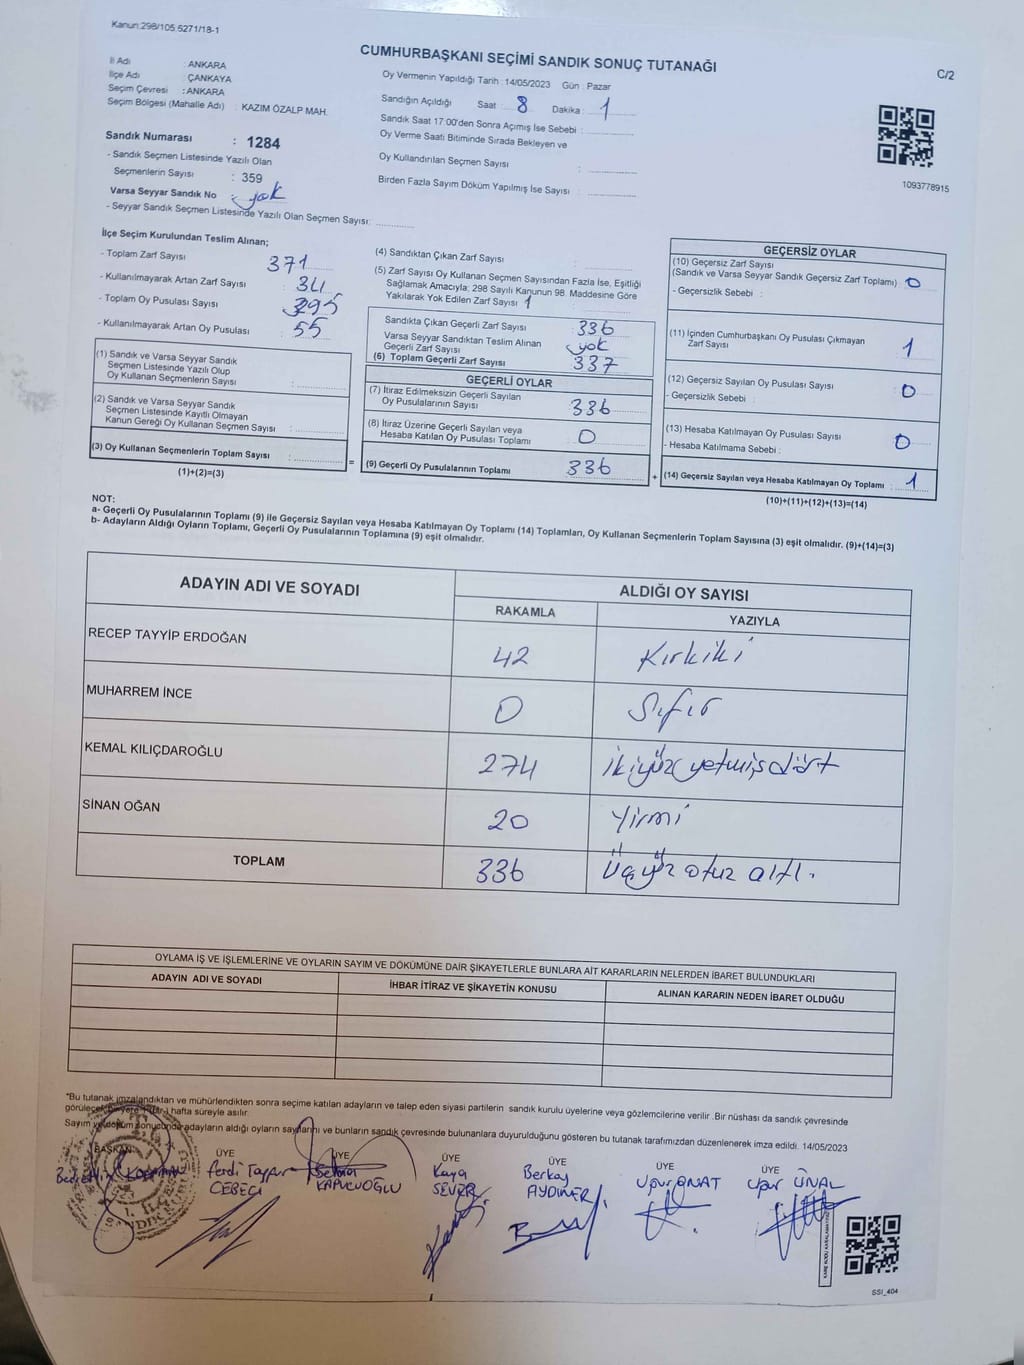 Kanun:298/105.5271/18-1
CUMHURBAŞKANI SEÇİMİ SANDIK SONUÇ TUTANAĞI
C/2
İl Adı : ANKARA
İlçe Adı : ÇANKAYA
Seçim Çevresi : ANKARA
Seçim Bölgesi (Mahalle Adı) : KAZIM ÖZALP MAH.
Oy Vermenin Yapıldığı Tarih : 14/05/2023 Gün : Pazar
Sandığın Açıldığı Saat : 8 Dakika : 1
Sandık Saat 17:00'den Sonra Açımış İse Sebebi :
Oy Verme Saati Bitiminde Sırada Bekleyen ve
Oy Kullandırılan Seçmen Sayısı :
Birden Fazla Sayım Döküm Yapılmış İse Sayısı :
1093778915
Sandık Numarası : 1284
- Sandık Seçmen Listesinde Yazılı Olan
Seçmenlerin Sayısı : 359
Varsa Seyyar Sandık No : yok
- Seyyar Sandık Seçmen Listesinde Yazılı Olan Seçmen Sayısı:
İlçe Seçim Kurulundan Teslim Alınan;
- Toplam Zarf Sayısı 371
- Kullanılmayarak Artan Zarf Sayısı : 34
- Toplam Oy Pusulası Sayısı 395
- Kullanılmayarak Artan Oy Pusulası : 55
(1) Sandık ve Varsa Seyyar Sandık
Seçmen Listesinde Yazılı Olup
Oy Kullanan Seçmenlerin Sayısı :
(2) Sandık ve Varsa Seyyar Sandık
Seçmen Listesinde Kayıtlı Olmayan
Kanun Gereği Oy Kullanan Seçmen Sayısı :
(3) Oy Kullanan Seçmenlerin Toplam Sayısı :
(1)+(2)=(3)
(4) Sandıktan Çıkan Zarf Sayısı :
(5) Zarf Sayısı Oy Kullanan Seçmen Sayısından Fazla İse, Eşitliği
Sağlamak Amacıyla; 298 Sayılı Kanunun 98. Maddesine Göre
Yakılarak Yok Edilen Zarf Sayısı 1
Sandıkta Çıkan Geçerli Zarf Sayısı : 336
Varsa Seyyar Sandıktan Teslim Alınan
Geçerli Zarf Sayısı : yok
(6) Toplam Geçerli Zarf Sayısı : 337
GEÇERLİ OYLAR
(7) İtiraz Edilmeksizin Geçerli Sayılan
Oy Pusulalarının Sayısı : 336
(8) İtiraz Üzerine Geçerli Sayılan veya
Hesaba Katılan Oy Pusulası Toplamı : 0
= (9) Geçerli Oy Pusulalarının Toplamı : 336
GEÇERSİZ OYLAR
(10) Geçersiz Zarf Sayısı
(Sandık ve Varsa Seyyar Sandık Geçersiz Zarf Toplamı) : 0
- Geçersizlik Sebebi :
(11) İçinden Cumhurbaşkanı Oy Pusulası Çıkmayan
Zarf Sayısı 1
(12) Geçersiz Sayılan Oy Pusulası Sayısı : 0
- Geçersizlik Sebebi :
(13) Hesaba Katılmayan Oy Pusulası Sayısı : 0
- Hesaba Katılmama Sebebi :
+ (14) Geçersiz Sayılan veya Hesaba Katılmayan Oy Toplamı : 1
(10)+(11)+(12)+(13)=(14)
NOT:
a- Geçerli Oy Pusulalarının Toplamı (9) ile Geçersiz Sayılan veya Hesaba Katılmayan Oy Toplamı (14) Toplamları, Oy Kullanan Seçmenlerin Toplam Sayısına (3) eşit olmalıdır. (9)+(14)=(3)
b- Adayların Aldığı Oyların Toplamı, Geçerli Oy Pusulalarının Toplamına (9) eşit olmalıdır.
ADAYIN ADI VE SOYADI
ALDIĞI OY SAYISI
RAKAMLA YAZIYLA
RECEP TAYYİP ERDOĞAN 42 Kırkiki
MUHARREM İNCE 0 Sıfır
KEMAL KILIÇDAROĞLU 274 ikiyüzyetmişdört
SİNAN OĞAN 20 Yirmi
TOPLAM 336 Üçyüz otuz altı.
OYLAMA İŞ VE İŞLEMLERİNE VE OYLARIN SAYIM VE DÖKÜMÜNE DAİR ŞİKAYETLERLE BUNLARA AİT KARARLARIN NELERDEN İBARET BULUNDUKLARI
ADAYIN ADI VE SOYADI İHBAR İTİRAZ VE ŞİKAYETİN KONUSU ALINAN KARARIN NEDEN İBARET OLDUĞU
"Bu tutanak imzalandıktan ve mühürlendikten sonra seçime katılan adayların ve talep eden siyasi partilerin sandık kurulu üyelerine veya gözlemcilerine verilir. Bir nüshası da sandık çevresinde
görülecek bir yere 1 (Bir) hafta süreyle asılır.
Sayım ve döküm sonucunda adayların aldığı oyların sayılarını ve bunların sandık çevresinde bulunanlara duyurulduğunu gösteren bu tutanak tarafımızdan düzenlenerek imza edildi. 14/05/2023
BAŞKAN ÜYE ÜYE ÜYE ÜYE ÜYE ÜYE
Ferdi Tayfur CEBECİ
KAPUCUOĞLU
Kaya SEVER
Berkay AYDINER
Uğur ONAT
Uğur ÜNAL
SSI_404